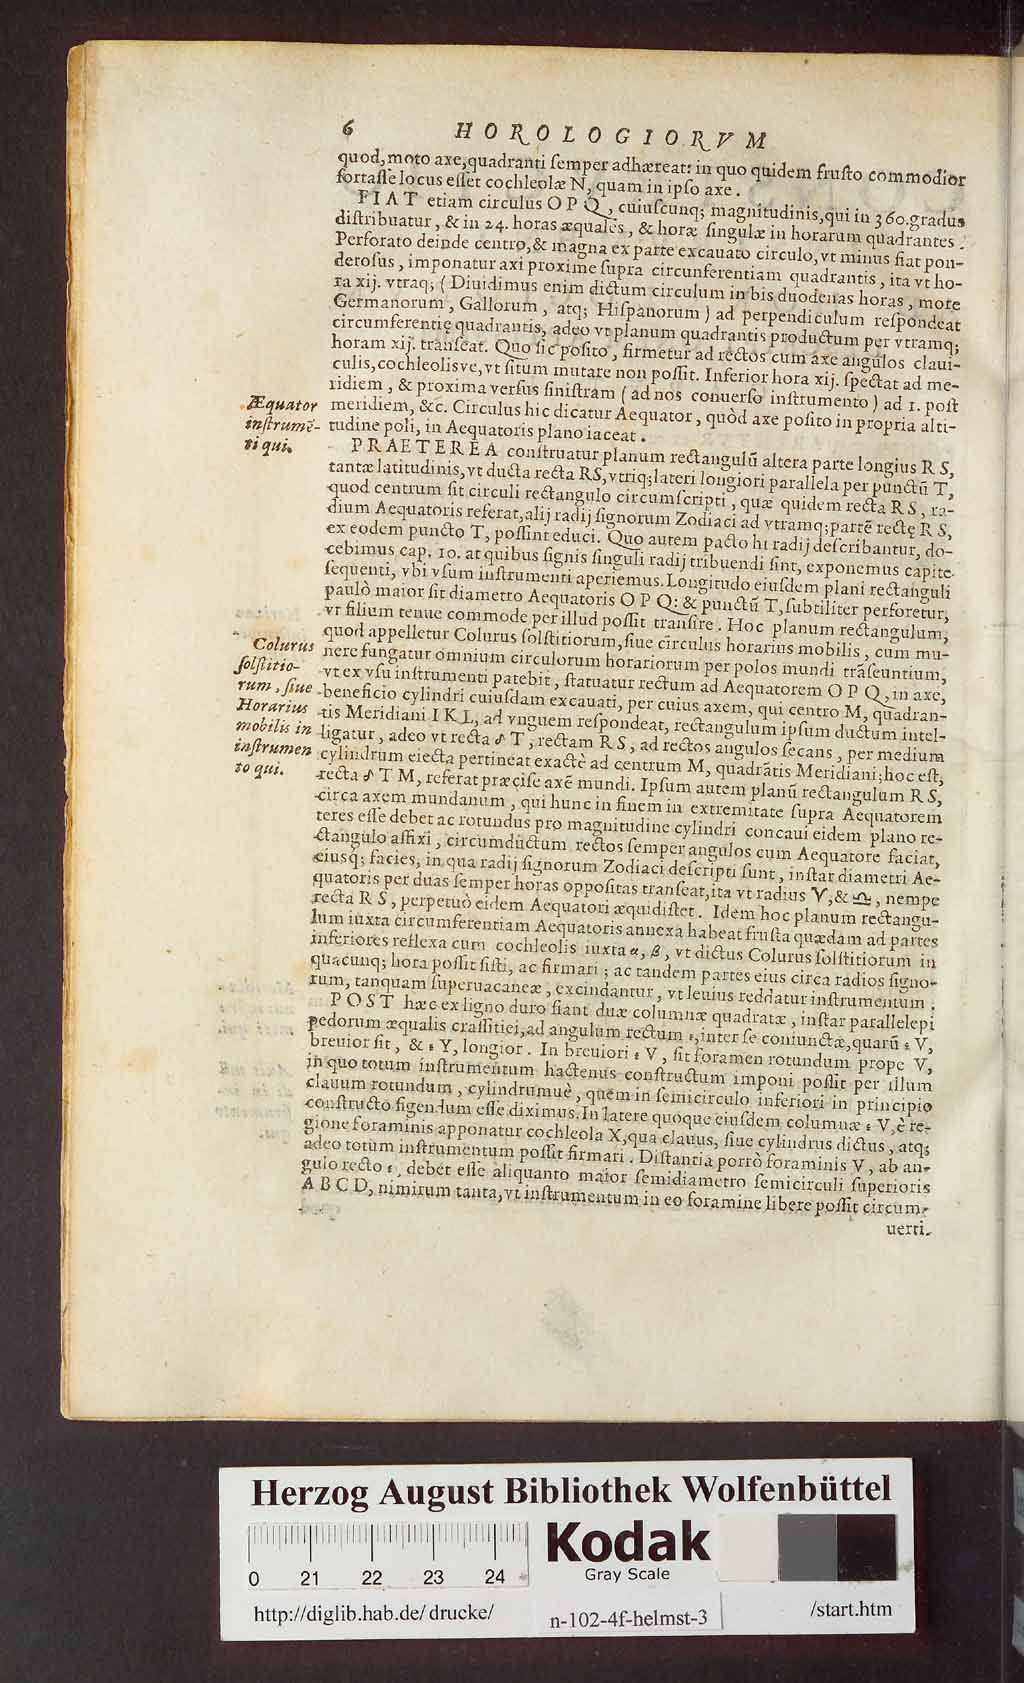 6 HOROLOGIORVM
quod, moto axe, quadranti ſemper adhæreat: in quo quidem fruſto commodior
fortaſſe locus eſſet cochleolæ N, quam in ipſo axe.
FIAT etiam circulus O P Q, cuiuſcunq; magnitudinis, qui in 360. gradus
diſtribuatur, & in 24. horas æquales, & horæ ſingulæ in horarum quadrantes.
Perforato deinde centro, & magna ex parte excauato circulo, vt minus fiat pon-
deroſus, imponatur axi proxime ſupra circunferentiam quadrantis, ita vt ho-
ra xij. vtraq; (Diuidimus enim dictum circulum in bis duodenas horas, more
Germanorum, Gallorum, atq; Hiſpanorum) ad perpendiculum reſpondeat
circumferentię quadrantis, adeo vt planum quadrantis productum per vtramq;
horam xij. tranſeat. Quo ſic poſito, firmetur ad rectos cum axe angulos claui-
culis, cochleolisve, vt ſitum mutare non poſſit. Inferior hora xij. ſpectat ad me-
ridiem, & proxima verſus ſiniſtram (ad nos conuerſo inſtrumento) ad 1. poſt
meridiem, &c. Circulus hic dicatur Aequator, quòd axe poſito in propria alti-
tudine poli, in Aequatoris plano iaceat.
Æquator
inſtrumē-
ti qui.
PRAETEREA conſtruatur planum rectangulū altera parte longius R S,
tantæ latitudinis, vt ducta recta RS, vtriq; lateri longiori parallela per punctū T,
quod centrum ſit circuli rectangulo circumſcripti, quæ quidem recta R S, ra-
dium Aequatoris referat, alij radij ſignorum Zodiaci ad vtramq; partē rectę R S,
ex eodem puncto T, poſſint educi. Quo autem pacto hi radij deſcribantur, do-
cebimus cap. 10. at quibus ſignis ſinguli radij tribuendi ſint, exponemus capite
ſequenti, vbi vſum inſtrumenti aperiemus. Longitudo eiuſdem plani rectanguli
paulò maior ſit diametro Aequatoris O P Q: & punctū T, ſubtiliter perforetur,
vt filium tenue commode per illud poſſit tranſire. Hoc planum rectangulum,
quod appelletur Colurus ſolſtitiorum, ſiue circulus horarius mobilis, cum mu-
nere fungatur omnium circulorum horariorum per polos mundi trāſeuntium,
vt ex vſu inſtrumenti patebit, ſtatuatur rectum ad Aequatorem O P Q, in axe,
beneficio cylindri cuiuſdam excauati, per cuius axem, qui centro M, quadran-
tis Meridiani I K L, ad vnguem reſpondeat, rectangulum ipſum ductum intel-
ligatur, adeo vt recta ♂ T, rectam R S, ad rectos angulos ſecans, per medium
cylindrum eiecta pertineat exactè ad centrum M, quadrātis Meridiani; hoc eſt,
recta ♂ T M, referat præciſe axē mundi. Ipſum autem planū rectangulum R S,
circa axem mundanum, qui hunc in finem in extremitate ſupra Aequatorem
teres eſſe debet ac rotundus pro magnitudine cylindri concaui eidem plano re-
ctangulo affixi, circumductum rectos ſemper angulos cum Aequatore faciat,
eiusq; facies, in qua radij ſignorum Zodiaci deſcripti ſunt, inſtar diametri Ae-
quatoris per duas ſemper horas oppoſitas tranſeat, ita vt radius ♈, & ♎, nempe
recta R S, perpetuò eidem Aequatori æquidiſtet. Idem hoc planum rectangu-
lum iuxta circumferentiam Aequatoris annexa habeat fruſta quædam ad partes
inferiores reflexa cum cochleolis iuxta α, β, vt dictus Colurus ſolſtitiorum in
quacunq; hora poſſit ſiſti, ac firmari; ac tandem partes eius circa radios ſigno-
rum, tanquam ſuperuacaneæ, excindantur, vt leuius reddatur inſtrumentum.
Colurus
ſolſtitio-
rum, ſiue
Horarius
mobilis in
inſtrumen
to qui.
POST hæc ex ligno duro fiant duæ columnæ quadratæ, inſtar parallelepi
pedorum æqualis craſſitiei, ad angulum rectum ε, inter ſe coniunctæ, quarū ε V,
breuior ſit, & ε Y, longior. In breuiori ε V, ſit foramen rotundum prope V,
in quo totum inſtrumentum hactenus conſtructum imponi poſſit per illum
clauum rotundum, cylindrumuè, quem in ſemicirculo inferiori in principio
conſtructo figendum eſſe diximus. In latere quoque eiuſdem columnæ ε V, è re-
gione foraminis apponatur cochleola X, qua clauus, ſiue cylindrus dictus, atq;
adeo totum inſtrumentum poſſit firmari. Diſtantia porrò foraminis V, ab an-
gulo recto ε, debet eſſe aliquanto maior ſemidiametro ſemicirculi ſuperioris
A B C D, nimirum tanta, vt inſtrumentum in eo foramine libere poſſit circum-
uerti.
Herzog August Bibliothek Wolfenbüttel
0 21 22 23 24
Kodak
Gray Scale
http://diglib.hab.de/drucke/ n-102-4f-helmst-3 /start.htm